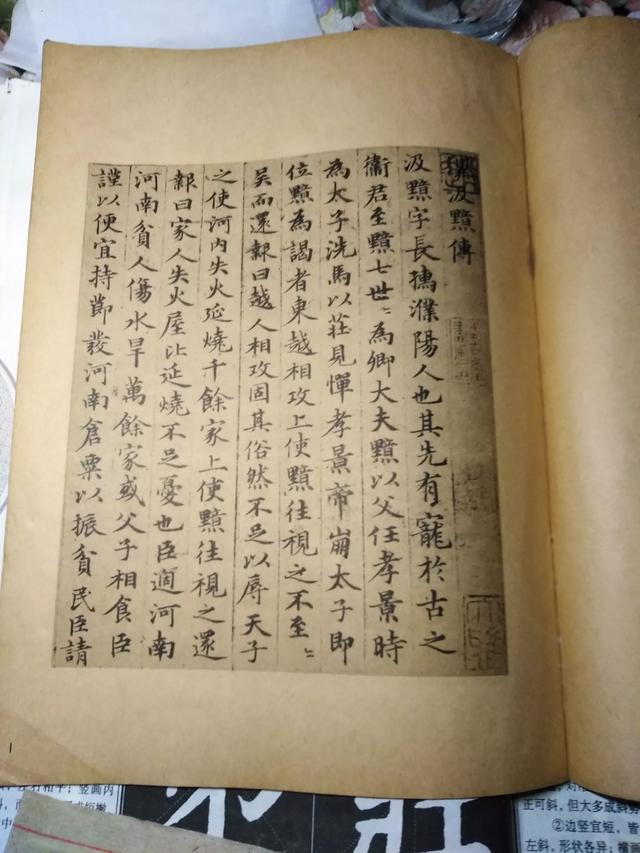 汲黯傳
汲黯字長孺濮陽人也其先有寵於古之
衛君至黯七世〻為卿大夫黯以父任孝景時
為太子洗馬以莊見憚孝景帝崩太子即
位黯為謁者東越相攻上使黯往視之不至〻
吳而還報曰越人相攻固其俗然不足以辱天子
之使河內失火延燒千餘家上使黯往視之還
報曰家人失火屋比延燒不足憂也臣適河南
河南貧人傷水旱萬餘家或父子相食臣
謹以便宜持節發河南倉粟以振貧民臣請
1
竖画内
正可斜，但大多成斜
②边竖宜短，皆
左斜，形状各异；横